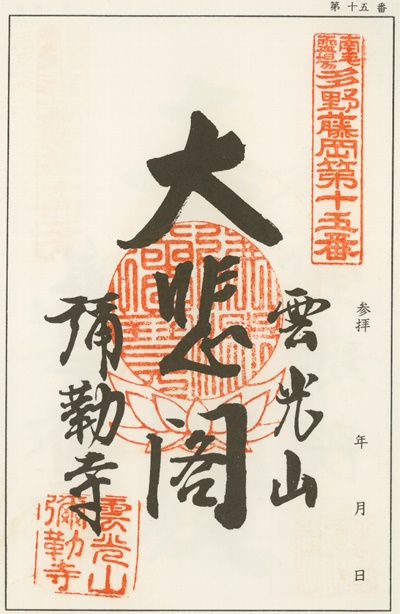 第十五番
南毛霊場
多野藤岡第十五番
参拝
年月日
雲光山
大悲閣
彌勒寺
雲光山
彌勒寺